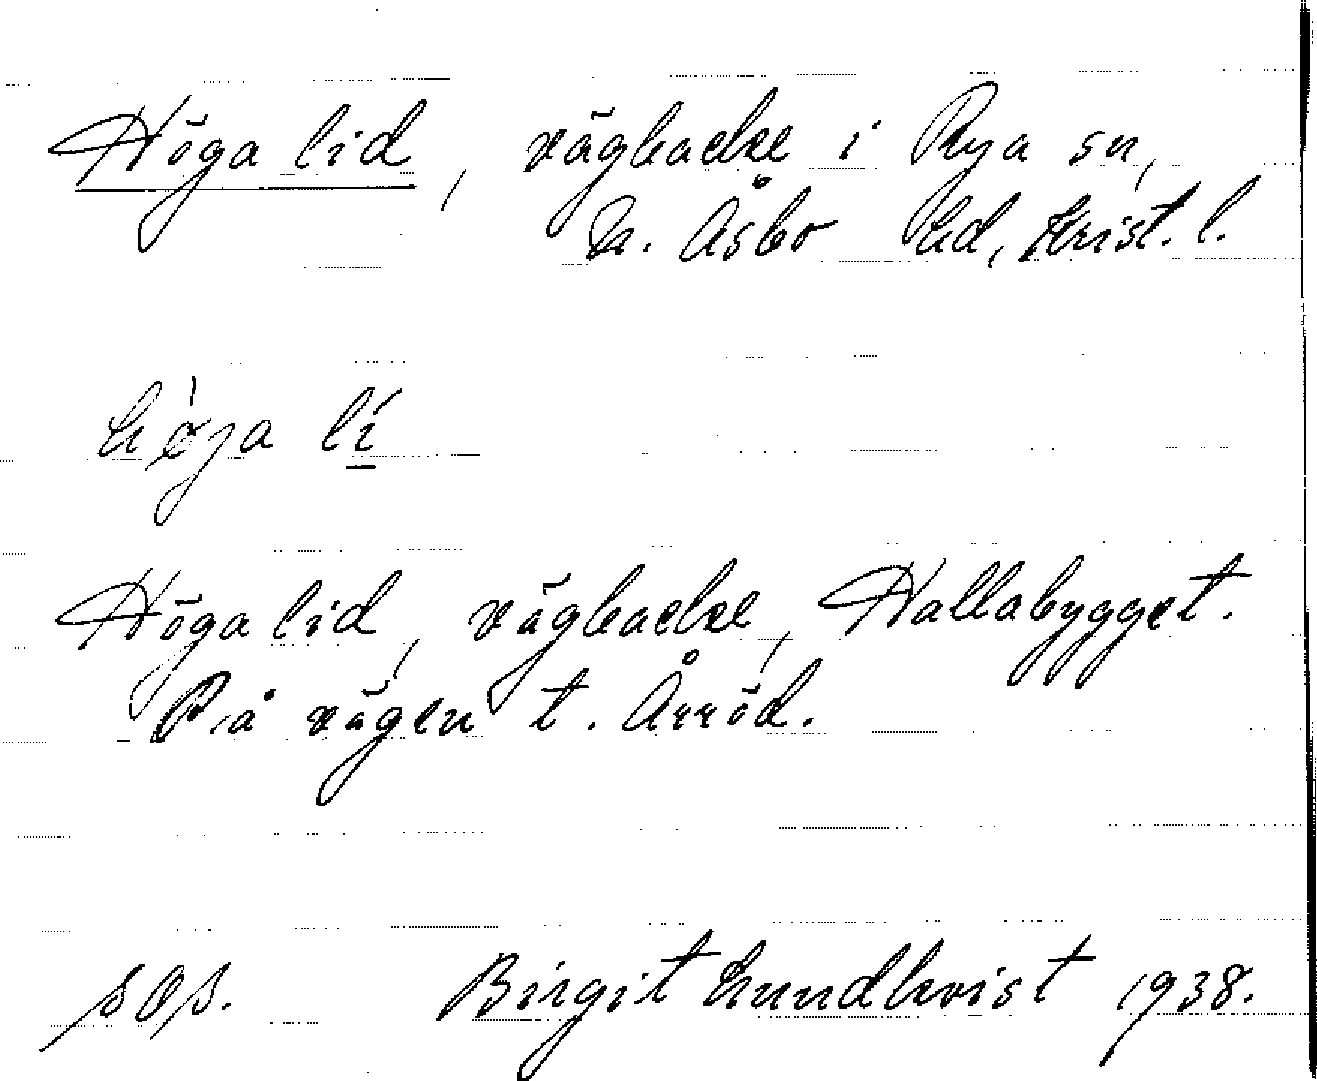 Höga lid, vägbacke i Rya sn,
N. Åsbo hd, Krist. l.
høja lí
Höga lid, vägbacke, Hallabygget.
På vägen t. Årröd.
sop. Birgit Lundkvist 1938.